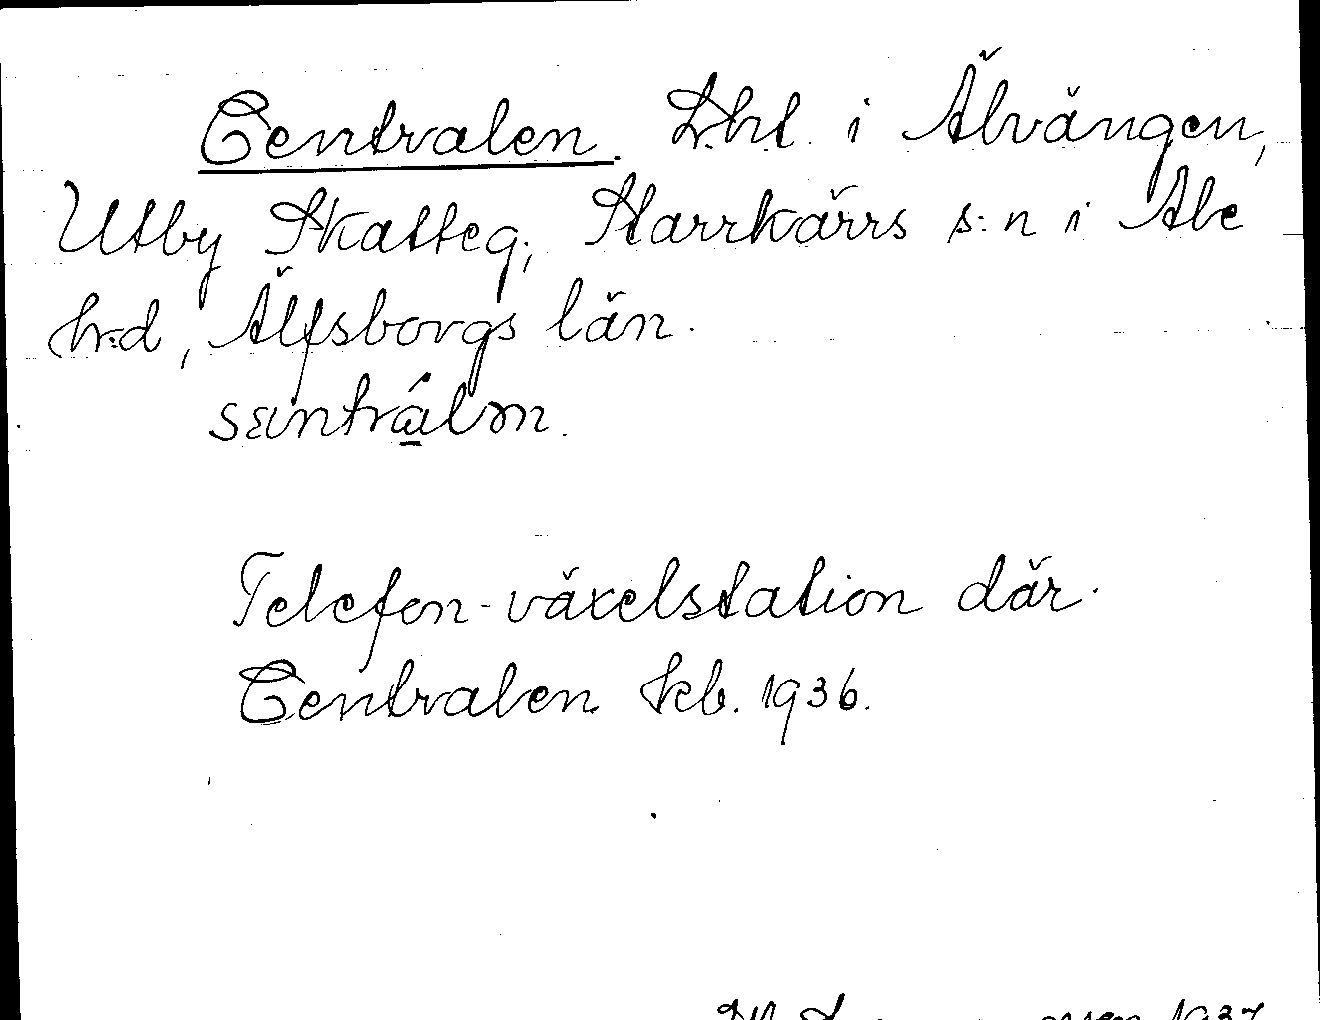 Centralen. Lht. i Älvängen,
Utby Skatteg., Starrkärrs s:n i Ale
h:d, Älfsborgs län.
Telefon-växelstation där.
Centralen Feb. 1936.
1937